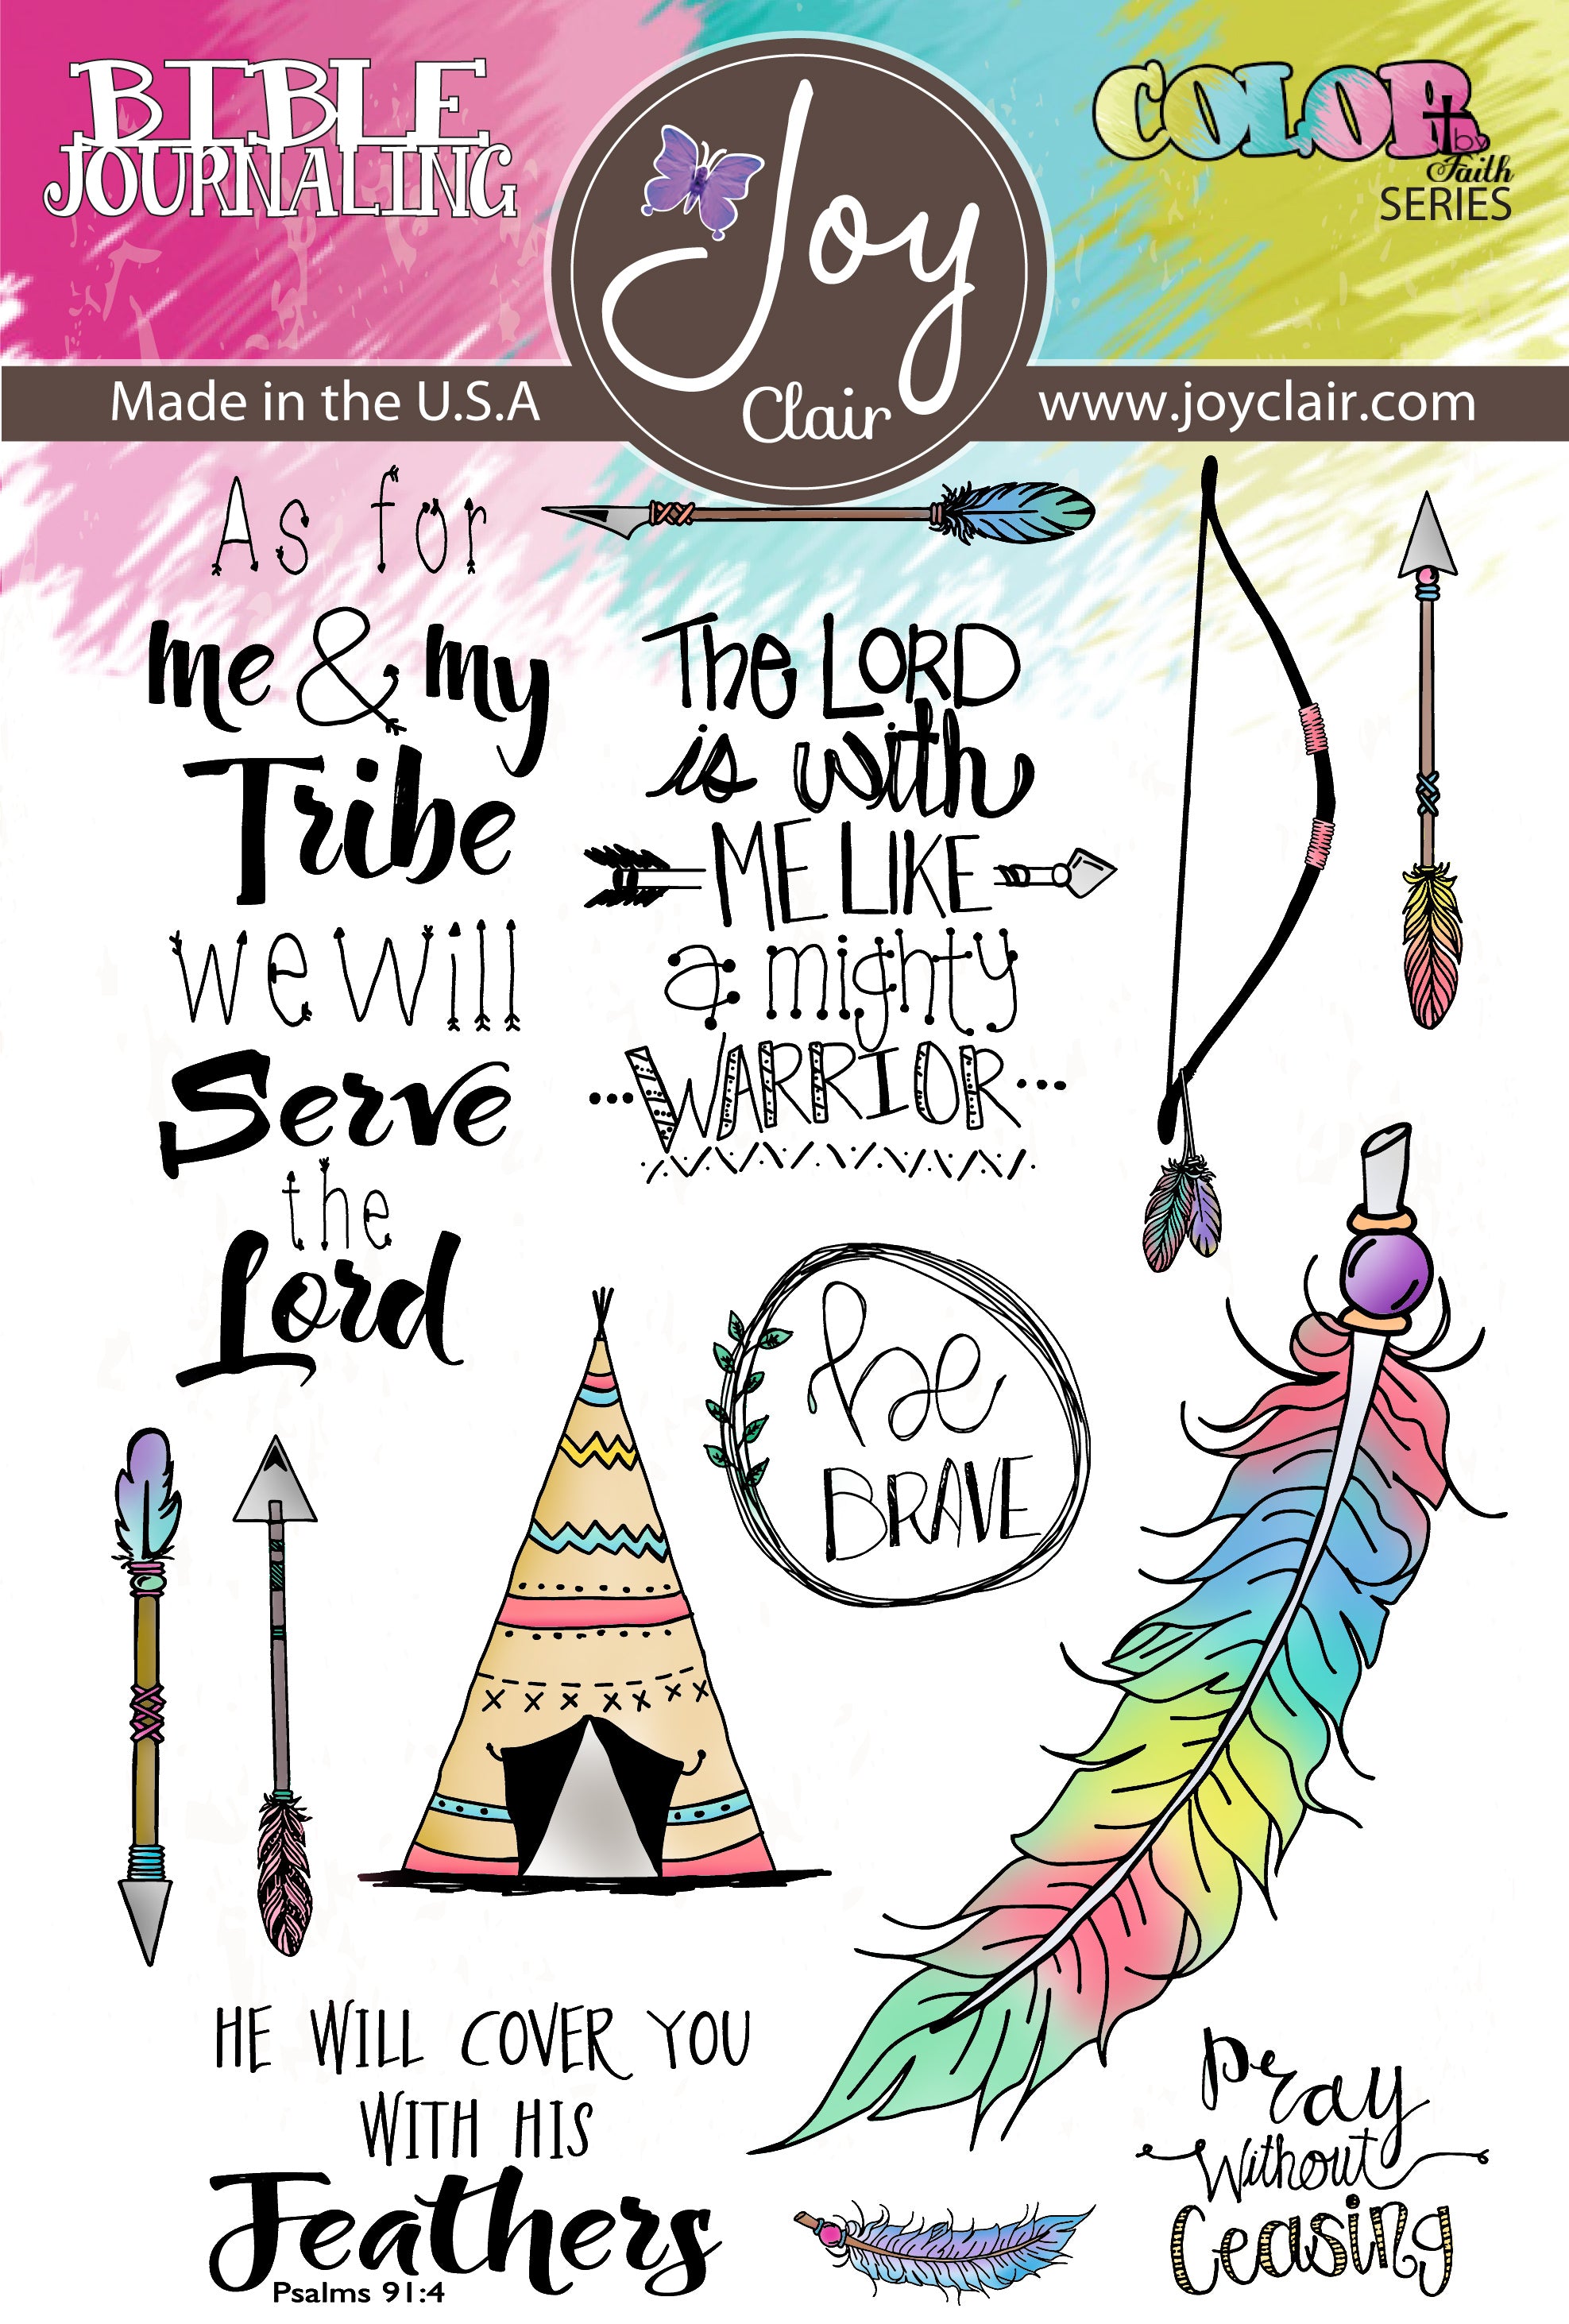 BIBLE
JOURNALING
Joy
Clair
COLOR
by
Faith
SERIES
Made in the U.S.A
www.joyclair.com
As for
me & my
Tribe
we will
Serve
the
Lord
The LORD
is with
ME LIKE
a mighty
WARRIOR
be
BRAVE
HE WILL COVER YOU
WITH HIS
Feathers
Psalms 91:4
Pray
Without
Ceasing